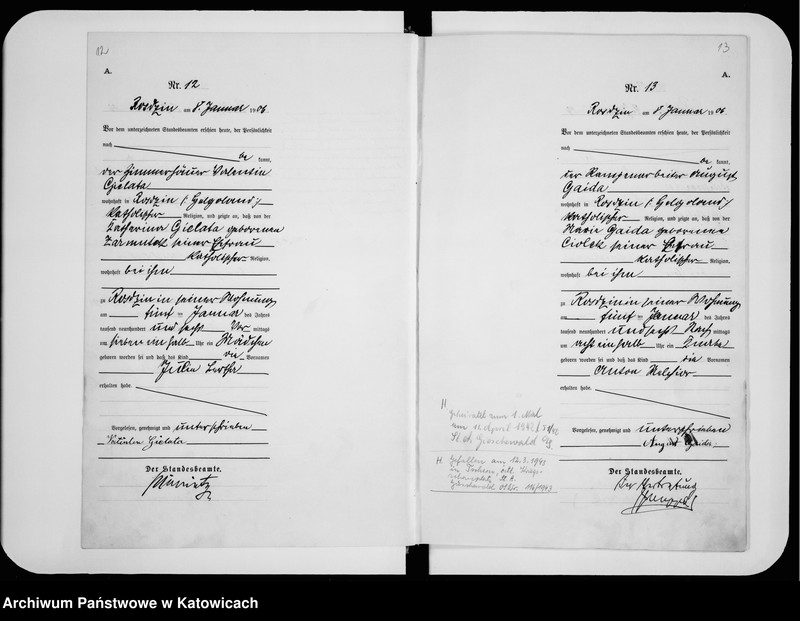 12
A.
Nr. 12
Rosdzin am 8. Januar 1906
Vor dem unterzeichneten Standesbeamten erschien heute, der Persönlichkeit
nach kannt,
der Zimmerhäuer Valentin
Gielata
wohnhaft in Rosdzin (Helgoland)
katholischer Religion, und zeigte an, daß von der
Katharina Gielata geborenen
seiner Ehefrau
katholischer Religion,
wohnhaft bei ihm
zu Rosdzin in seiner Wohnung
am fünf ten Januar des Jahres
tausend neunhundert und sechs Vor mittags
um sieben ein halb Uhr ein Mädchen
geboren worden sei und daß das Kind die Vornamen
Julie Bertha
erhalten habe.
Vorgelesen, genehmigt und unterschrieben
Valentin Gielata
Der Standesbeamte.
13
A.
Nr. 13
Rosdzin am 8. Januar 1906
Vor dem unterzeichneten Standesbeamten erschien heute, der Persönlichkeit
nach kannt,
der August
Gaida
wohnhaft in Rosdzin (Helgoland)
katholischer Religion, und zeigte an, daß von der
Marie Gaida geborenen
Ciolek seiner Ehefrau
katholischer Religion,
wohnhaft bei ihm
zu Rosdzin in seiner Wohnung
am fünf ten Januar des Jahres
tausend neunhundert und sechs Nach mittags
um acht ein halb Uhr ein Knabe
geboren worden sei und daß das Kind die Vornamen
Anton Melchior
erhalten habe.
Vorgelesen, genehmigt und unterschrieben
August Gaida
Der Standesbeamte.
In Vertretung
H. Gefallen am 12.3.1943
Archiwum Państwowe w Katowicach